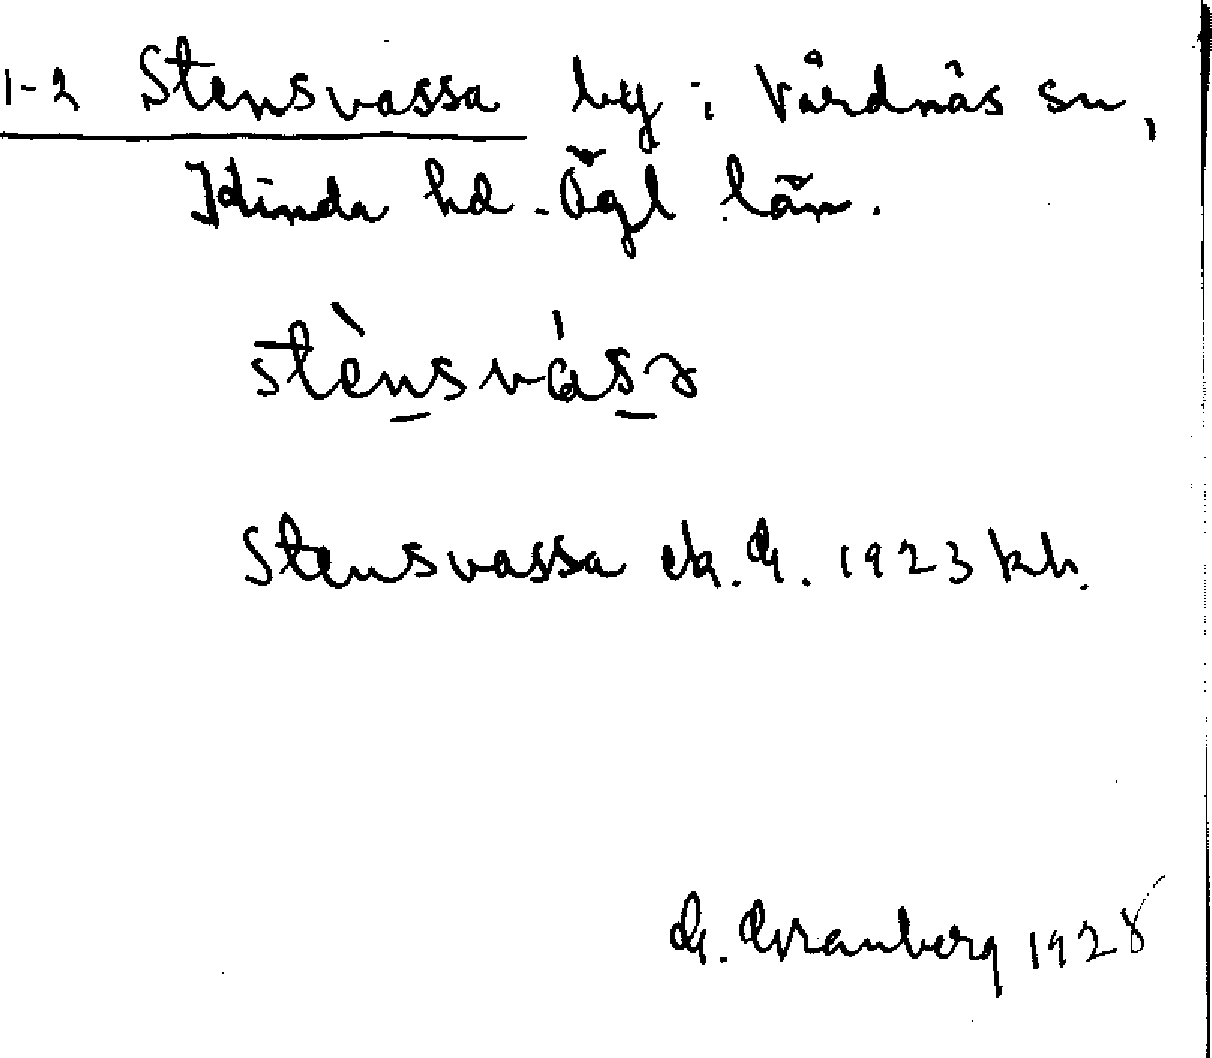 1-2 Stensvassa by i Vårdnäs sn,
Kinda hd. Ögl län.
stènsvásɔ
Stensvassa ek. G. 1923 kh.
G. Granberg 1928